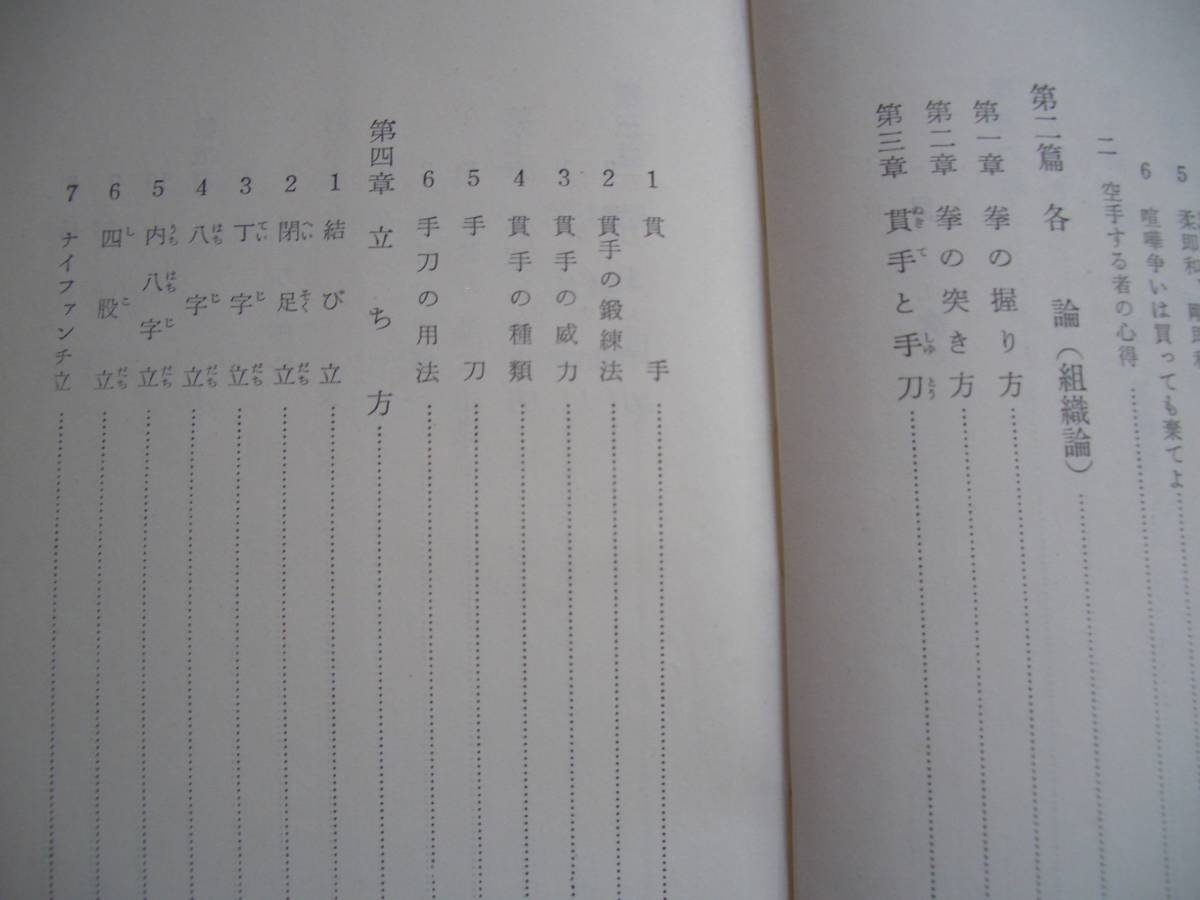 5 柔即和、剛即和
6 喧嘩争いは買っても棄てよ
二 空手する者の心得
第二篇 各論(組織論)
第一章 拳の握り方
第二章 拳の突き方
第三章 貫手と手刀
1 貫手
2 貫手の鍛練法
3 貫手の威力
4 貫手の種類
5 手刀
6 手刀の用法
第四章 立ち方
1 結び立
2 閉足立
3 丁字立
4 八字立
5 内八字立
6 四股立
7 ナイファンチ立